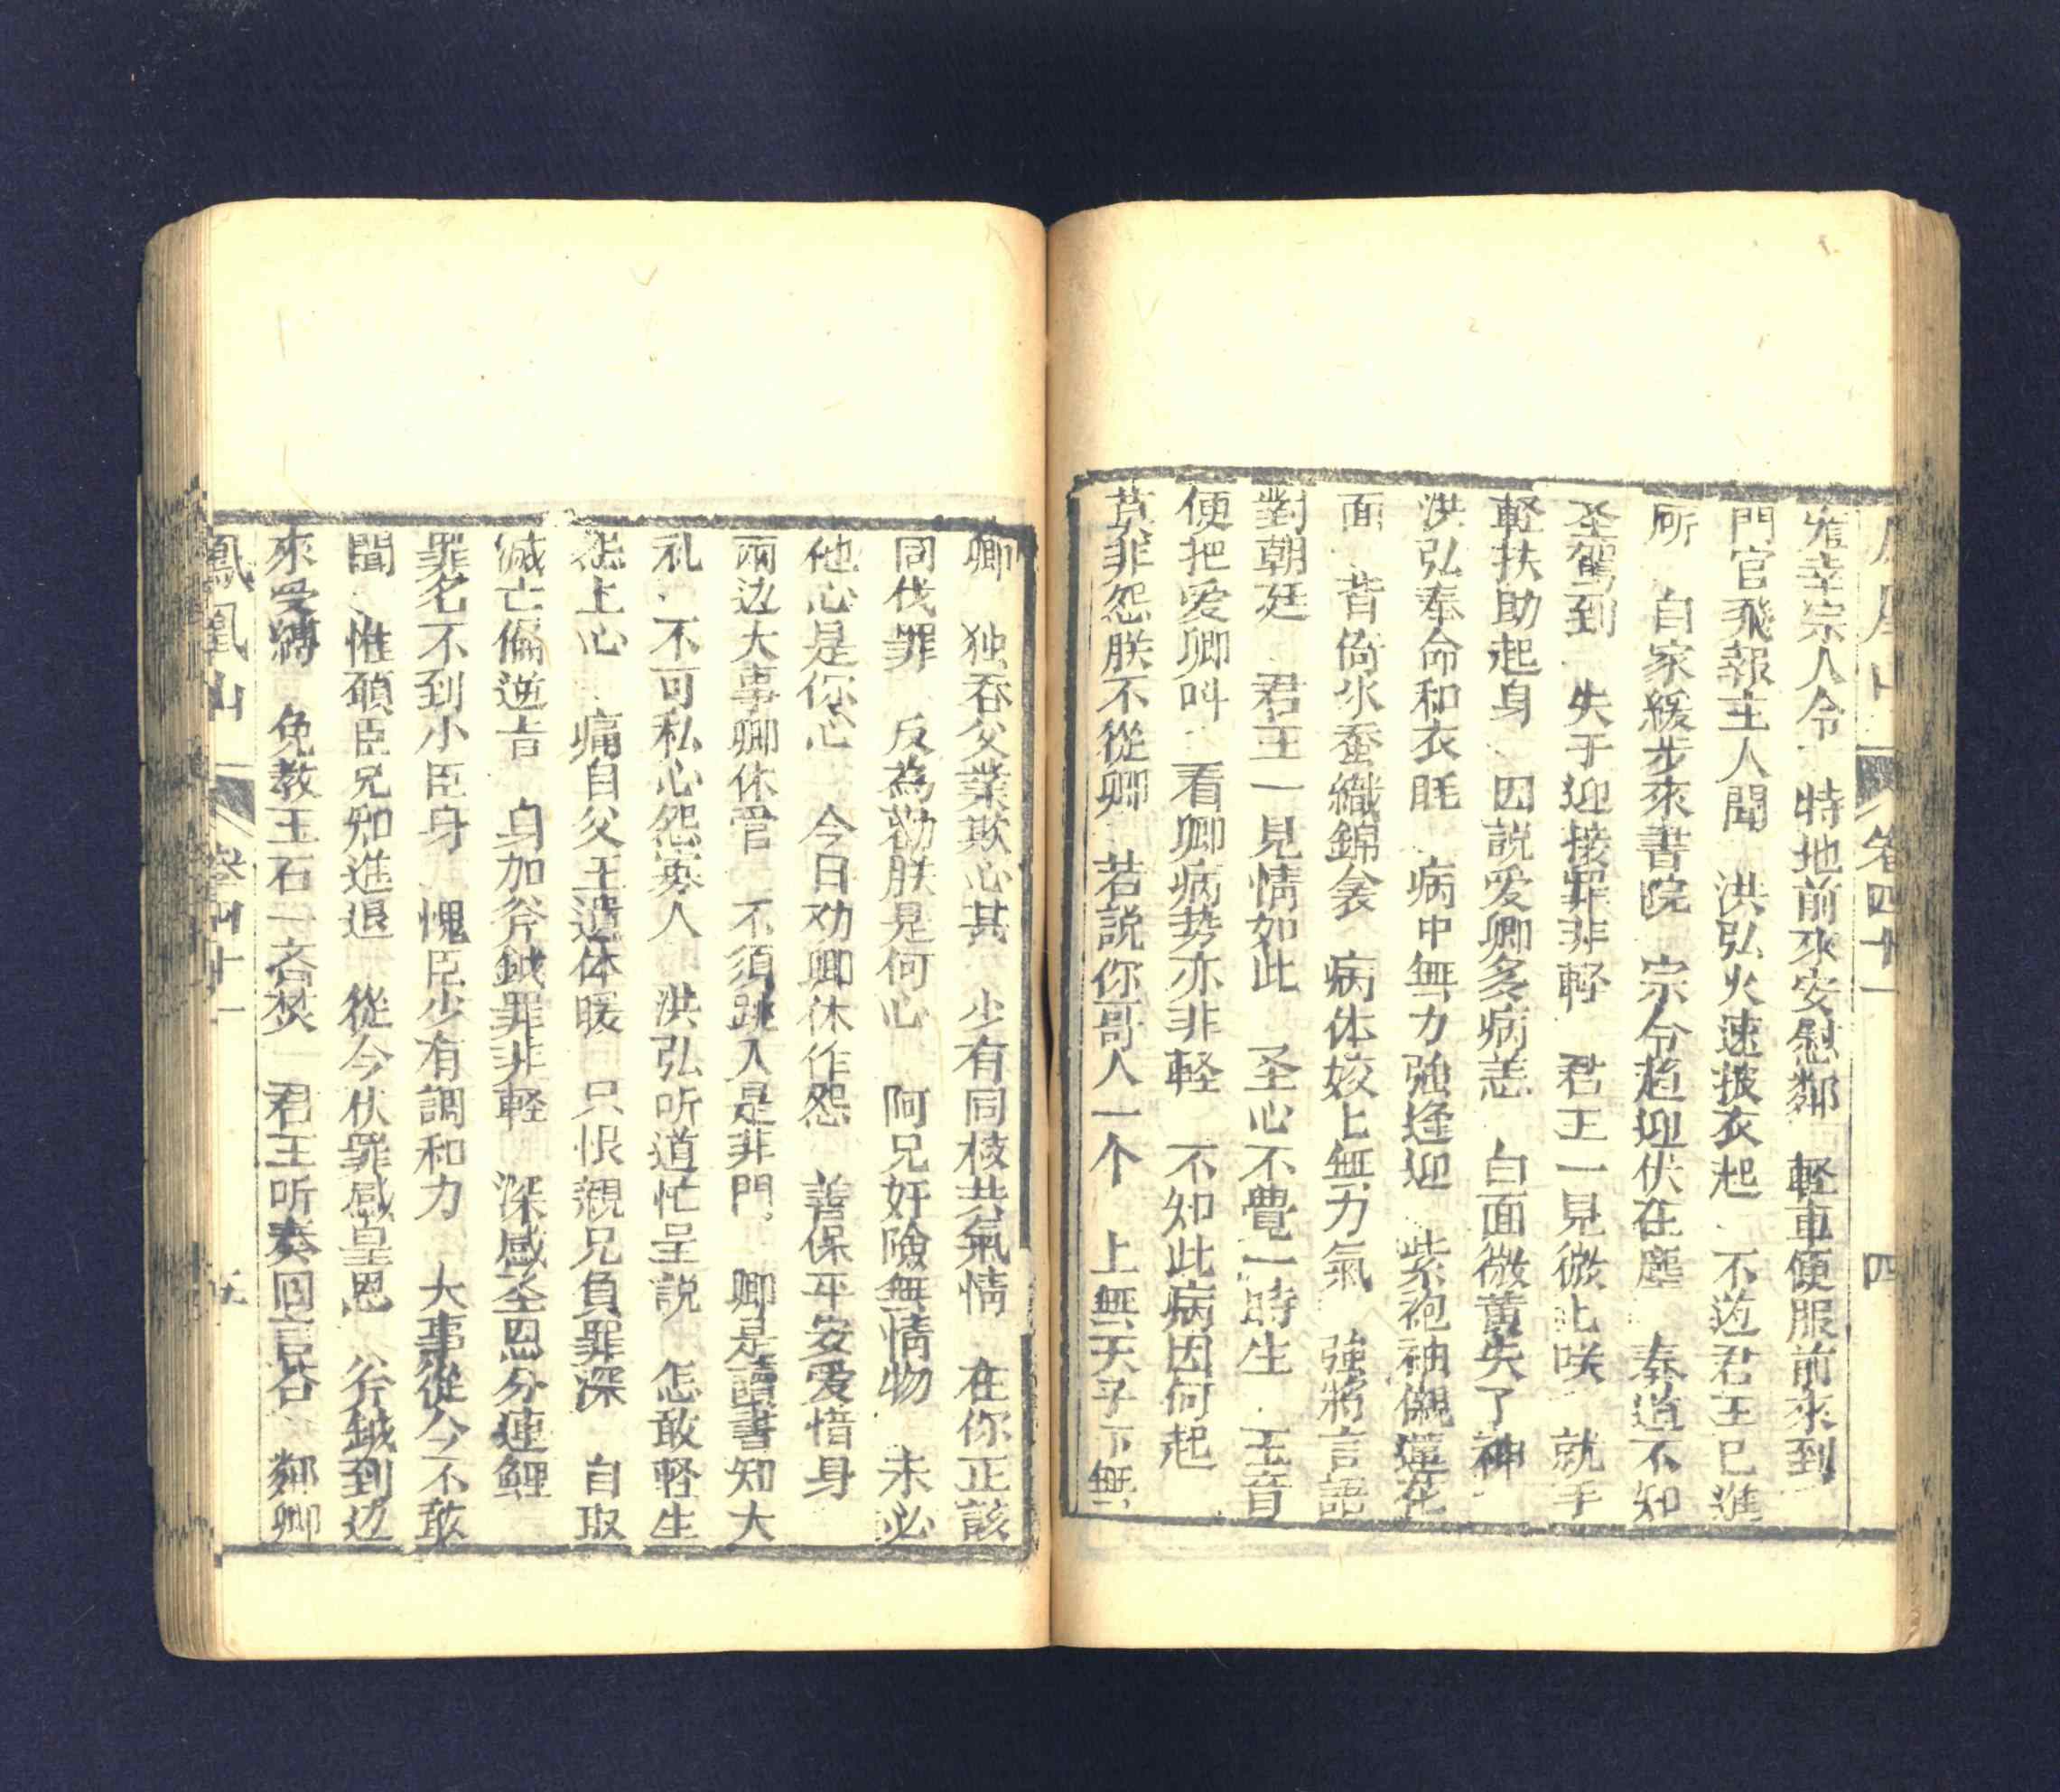 鳳凰山 卷四十一 四
雍幸宗人令 特地前來安慰鄰 軽車便服前來到
門官飛報主人聞 洪弘火速披衣起 不迨君王已進
所 自家緩步來書院 宗令趋迎伏在塵 奏道不知
圣駕到 失于迎接罪非軽 君王一見微上咲 就手
軽扶助起身 因説爱卿多病恙 白面微黄失了神
洪弘奉命和衣眊 病中無力強逢迎 紫袍袖儭蓮花
面 背倚氷蚕織錦衾 病体姣上無力氣 強將言語
對朝廷 君王一見情如此 圣心不覺一時生 玉音
便把爱卿叫 看卿病势亦非軽 不知此病因何起
莫非怨朕不從卿 若説你哥人一个 上無天子下無
卿 独吞父業欺心甚 少有同枝共氣情 在你正該
同伐罪 反為勸朕是何心 阿兄奸險無情物 未必
他心是你心 今日劝卿休作怨 善保平安爱惜身
兩边大事卿休管 不須跳入是非門 卿是讀書知大
礼 不可私心怨寡人 洪弘听道忙呈説 怎敢軽生
怨上心 痛自父王遺体暖 只恨親兄負罪深 自取
滅亡偏逆旨 身加斧鉞罪非軽 深感圣恩分連鯉
罪名不到小臣身 愧臣少有調和力 大事從今不敢
聞 惟碩臣兄知進退 從今伏罪感皇恩 斧鉞到边
來受縛 免教玉石一斉焚 君王听奏回言答 鄰卿
鳳凰山 卷四十一 五